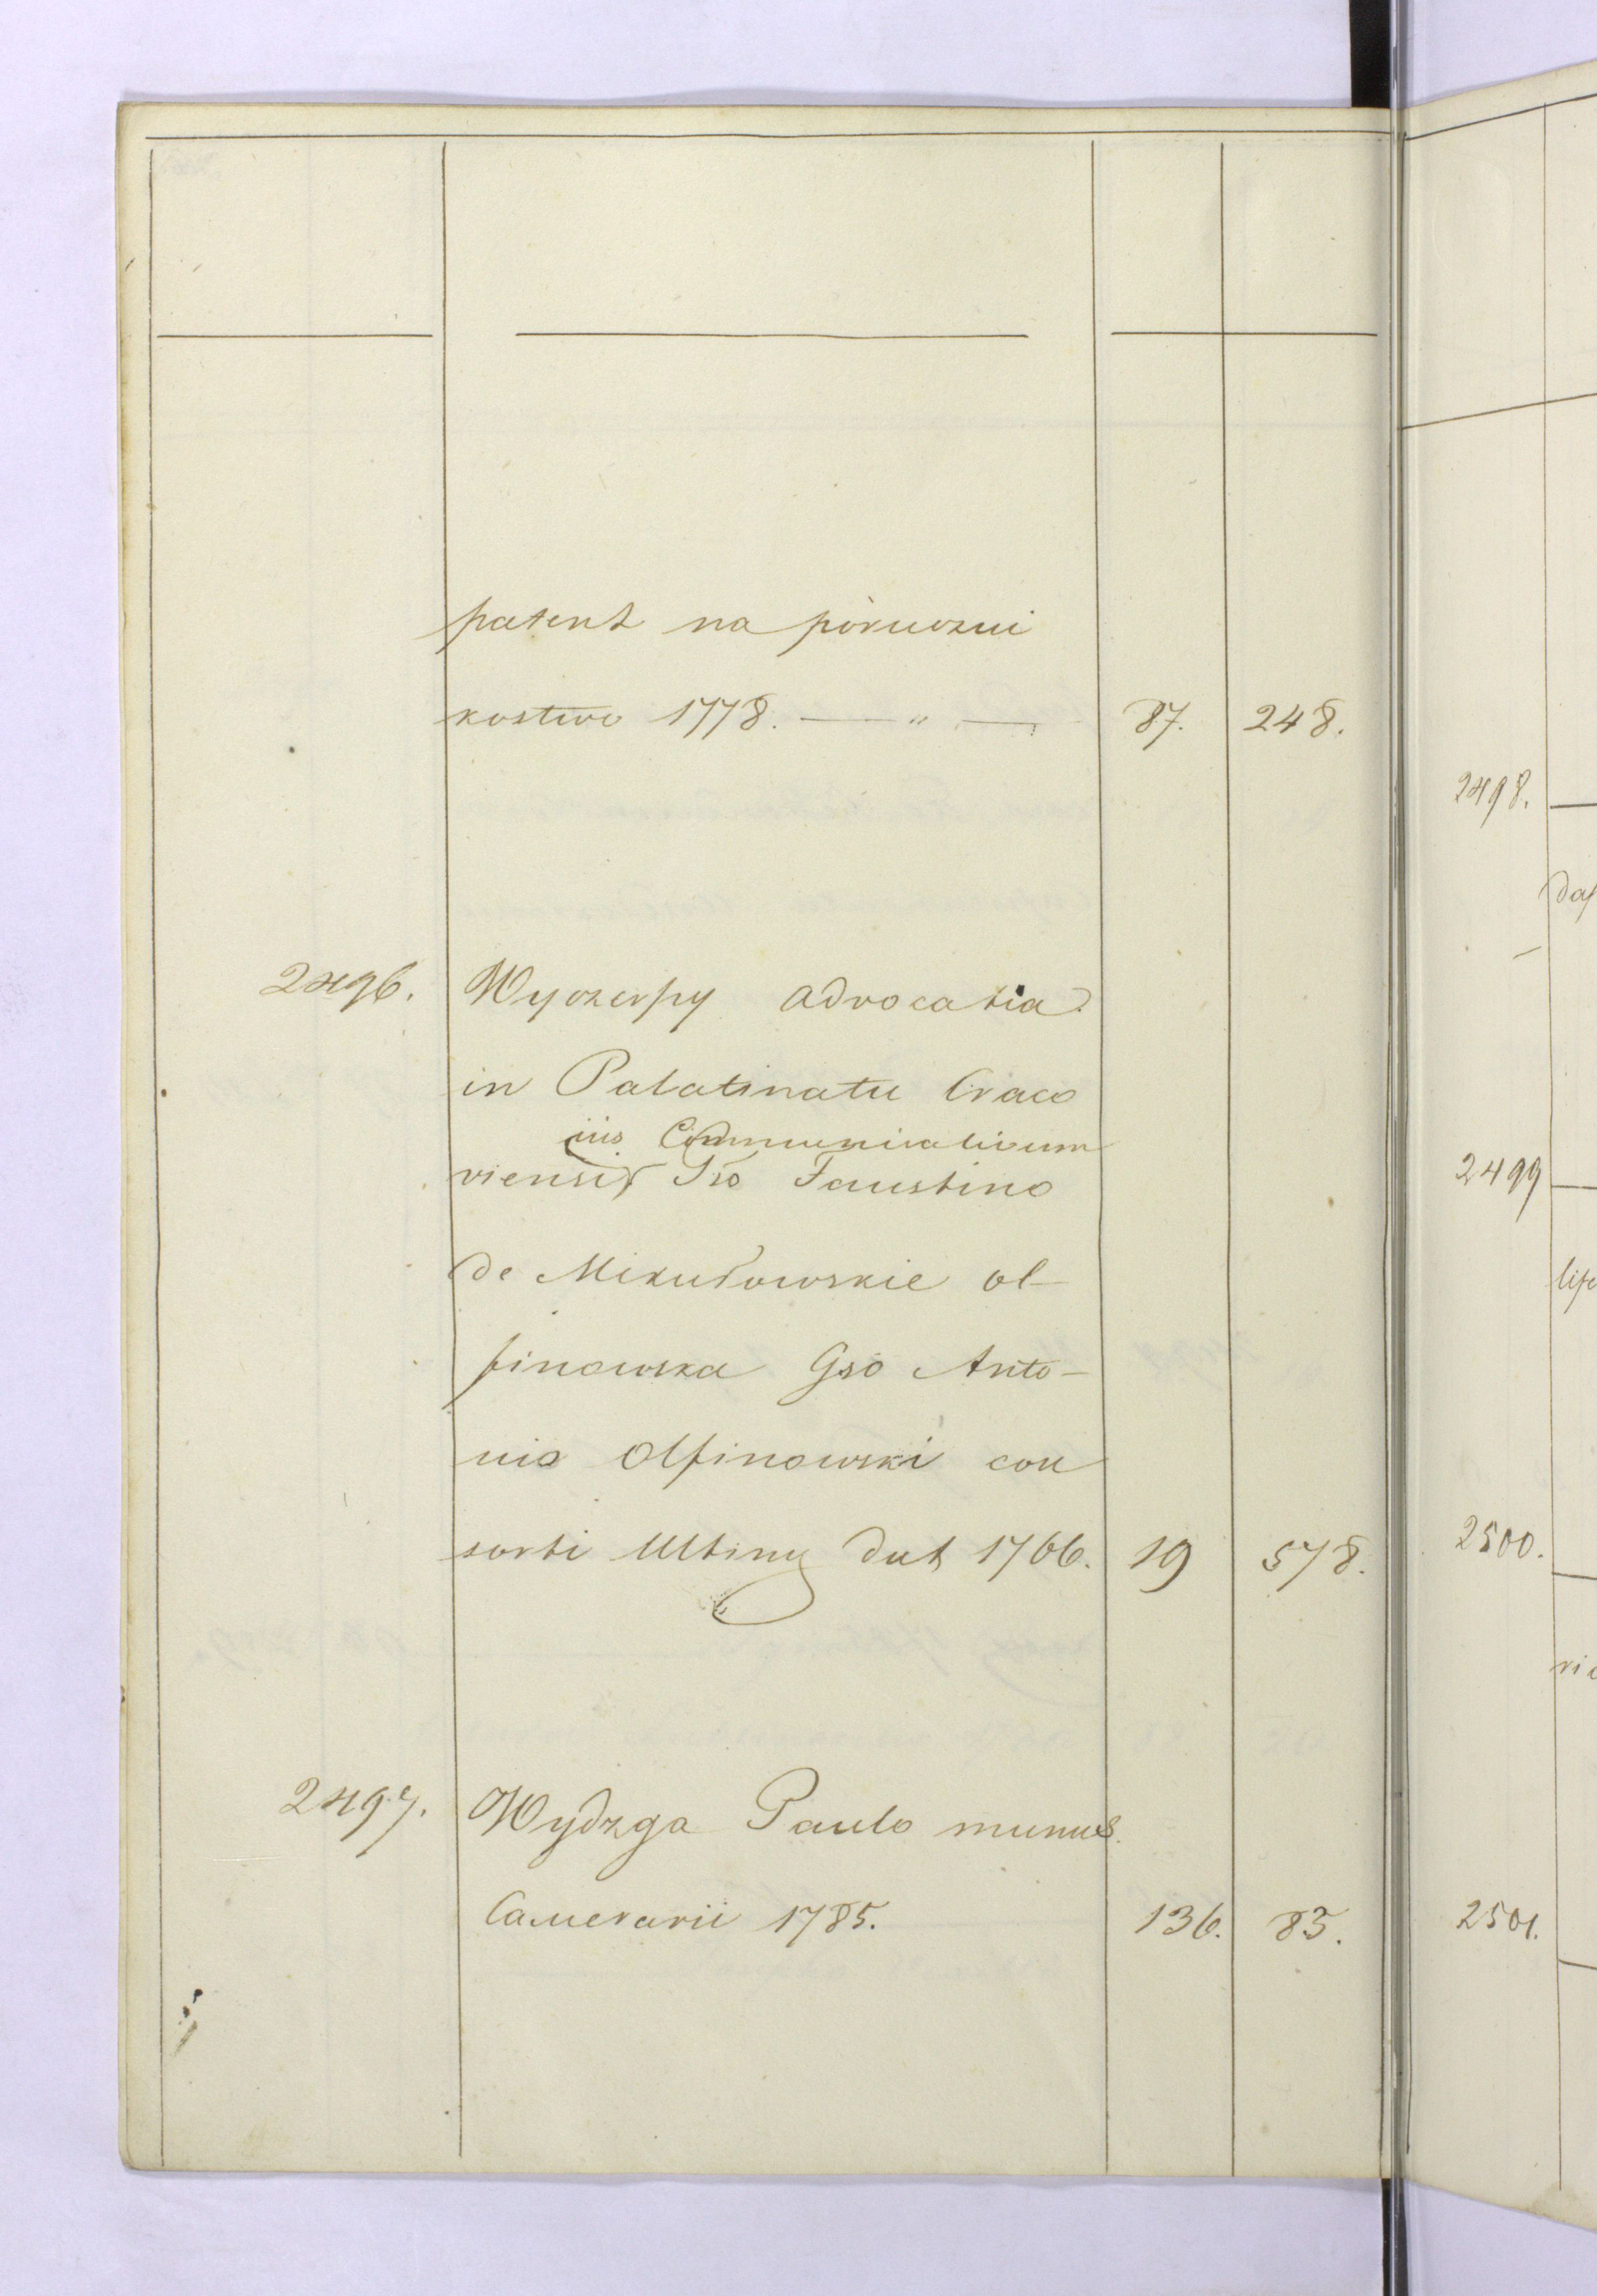 patent na póruczni
kostwo 1778. — " — 87. 248.
2496. Wyczerpy advocatia
in Palatinatu Craco
iis Communicativum
viensi Gso Faustino
de Mikułowskie Ol-
finowska Gso Anto-
nio Olfinowski con
sorti Ultimy dat 1766. 19 578.
2497. Wydzga Paulo munus
Camerarii 1785. 136. 83.
2498.
2499
2500.
2501.